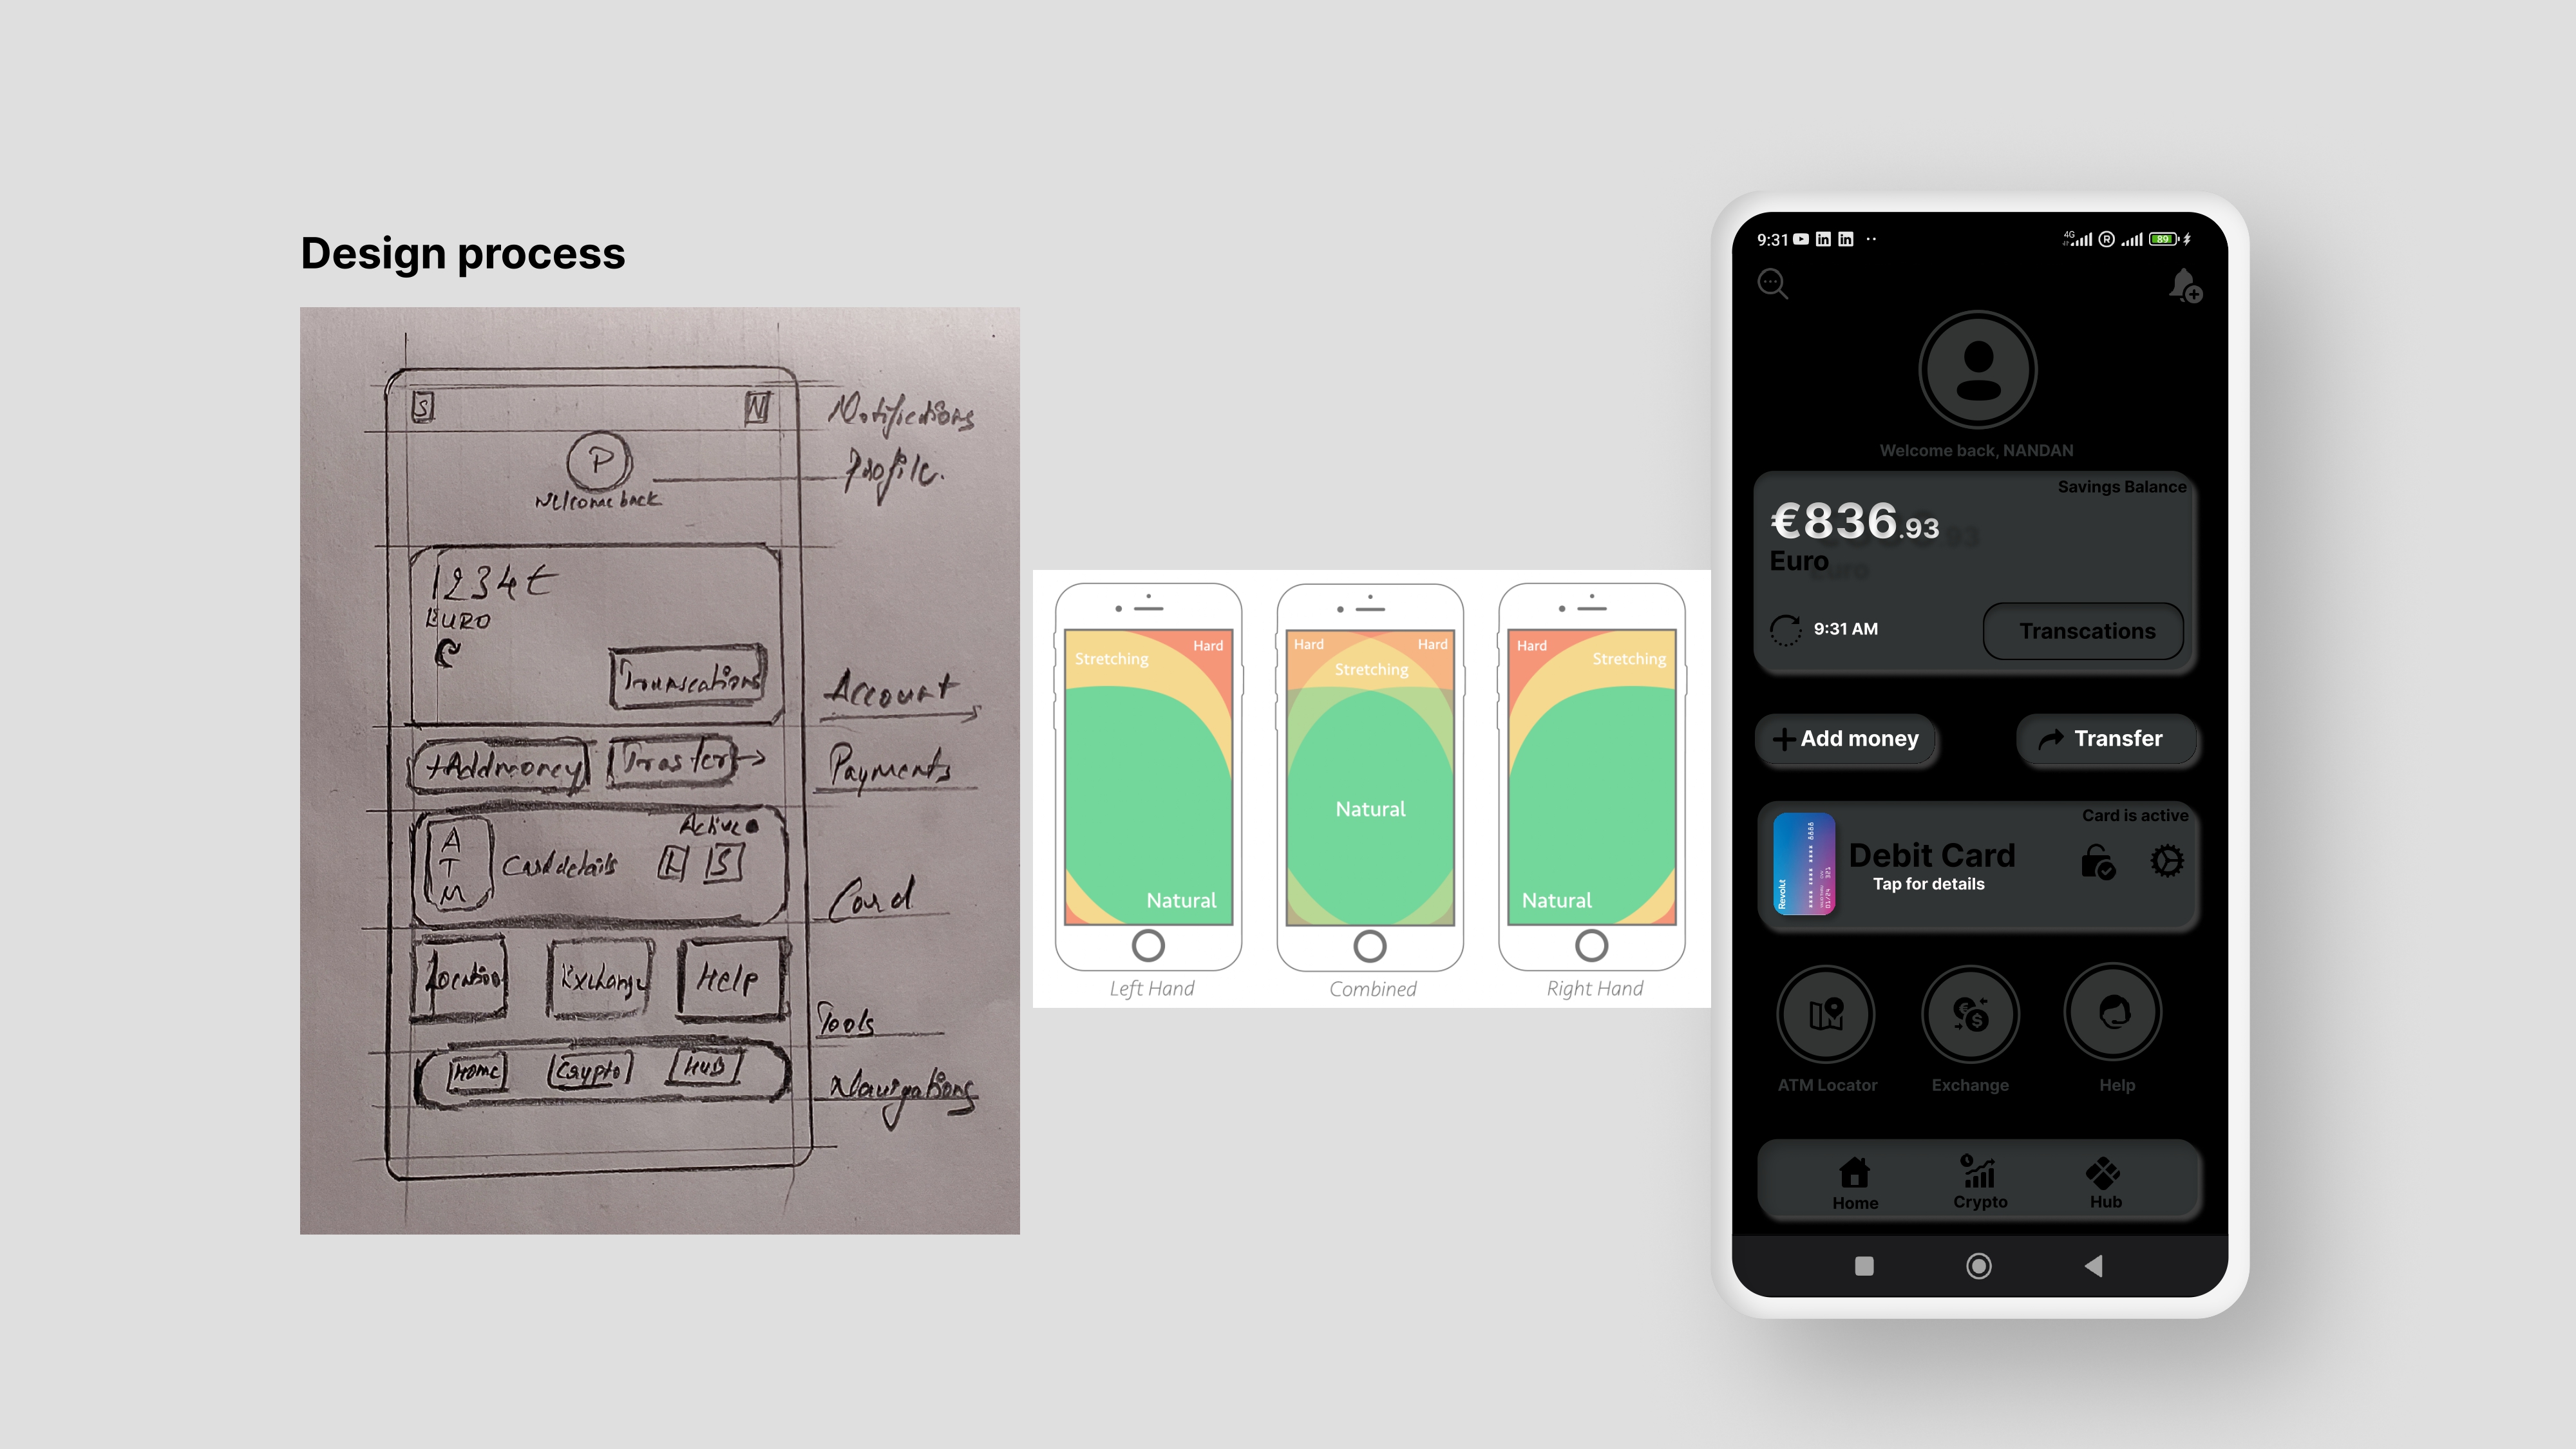 Design process
S
N
Notifications
P
Profile.
Welcome back
1234€
EURO
Transcations
Account
+Addmoney
Trasfer
Payments
Active
A
T
M
Card details
L
S
Card
Location
Exchange
Help
Tools
Home
Crypto
HUB
Navigations
Stretching
Hard
Natural
Left Hand
Hard
Hard
Stretching
Natural
Combined
Hard
Stretching
Natural
Right Hand
9:31
4G
R
89
Welcome back, NANDAN
Savings Balance
€836.93
Euro
9:31 AM
Transcations
Add money
Transfer
Card is active
Revolut
8888
01/24 321
Debit Card
Tap for details
ATM Locator
Exchange
Help
Home
Crypto
Hub